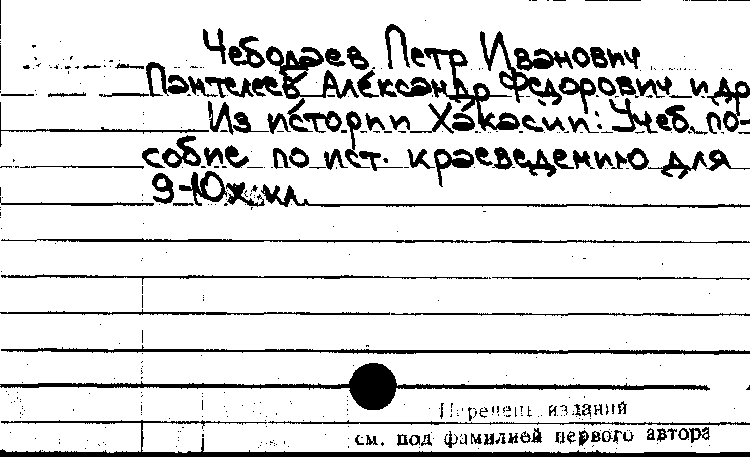 Чебодаев Петр Иванович
Пантелеев Александр Федорович и др
Из истории Хакасии: Учеб. по-
собие по ист. краеведению для
9-10х кл.
Перечень изданий
см. под фамилией первого автора